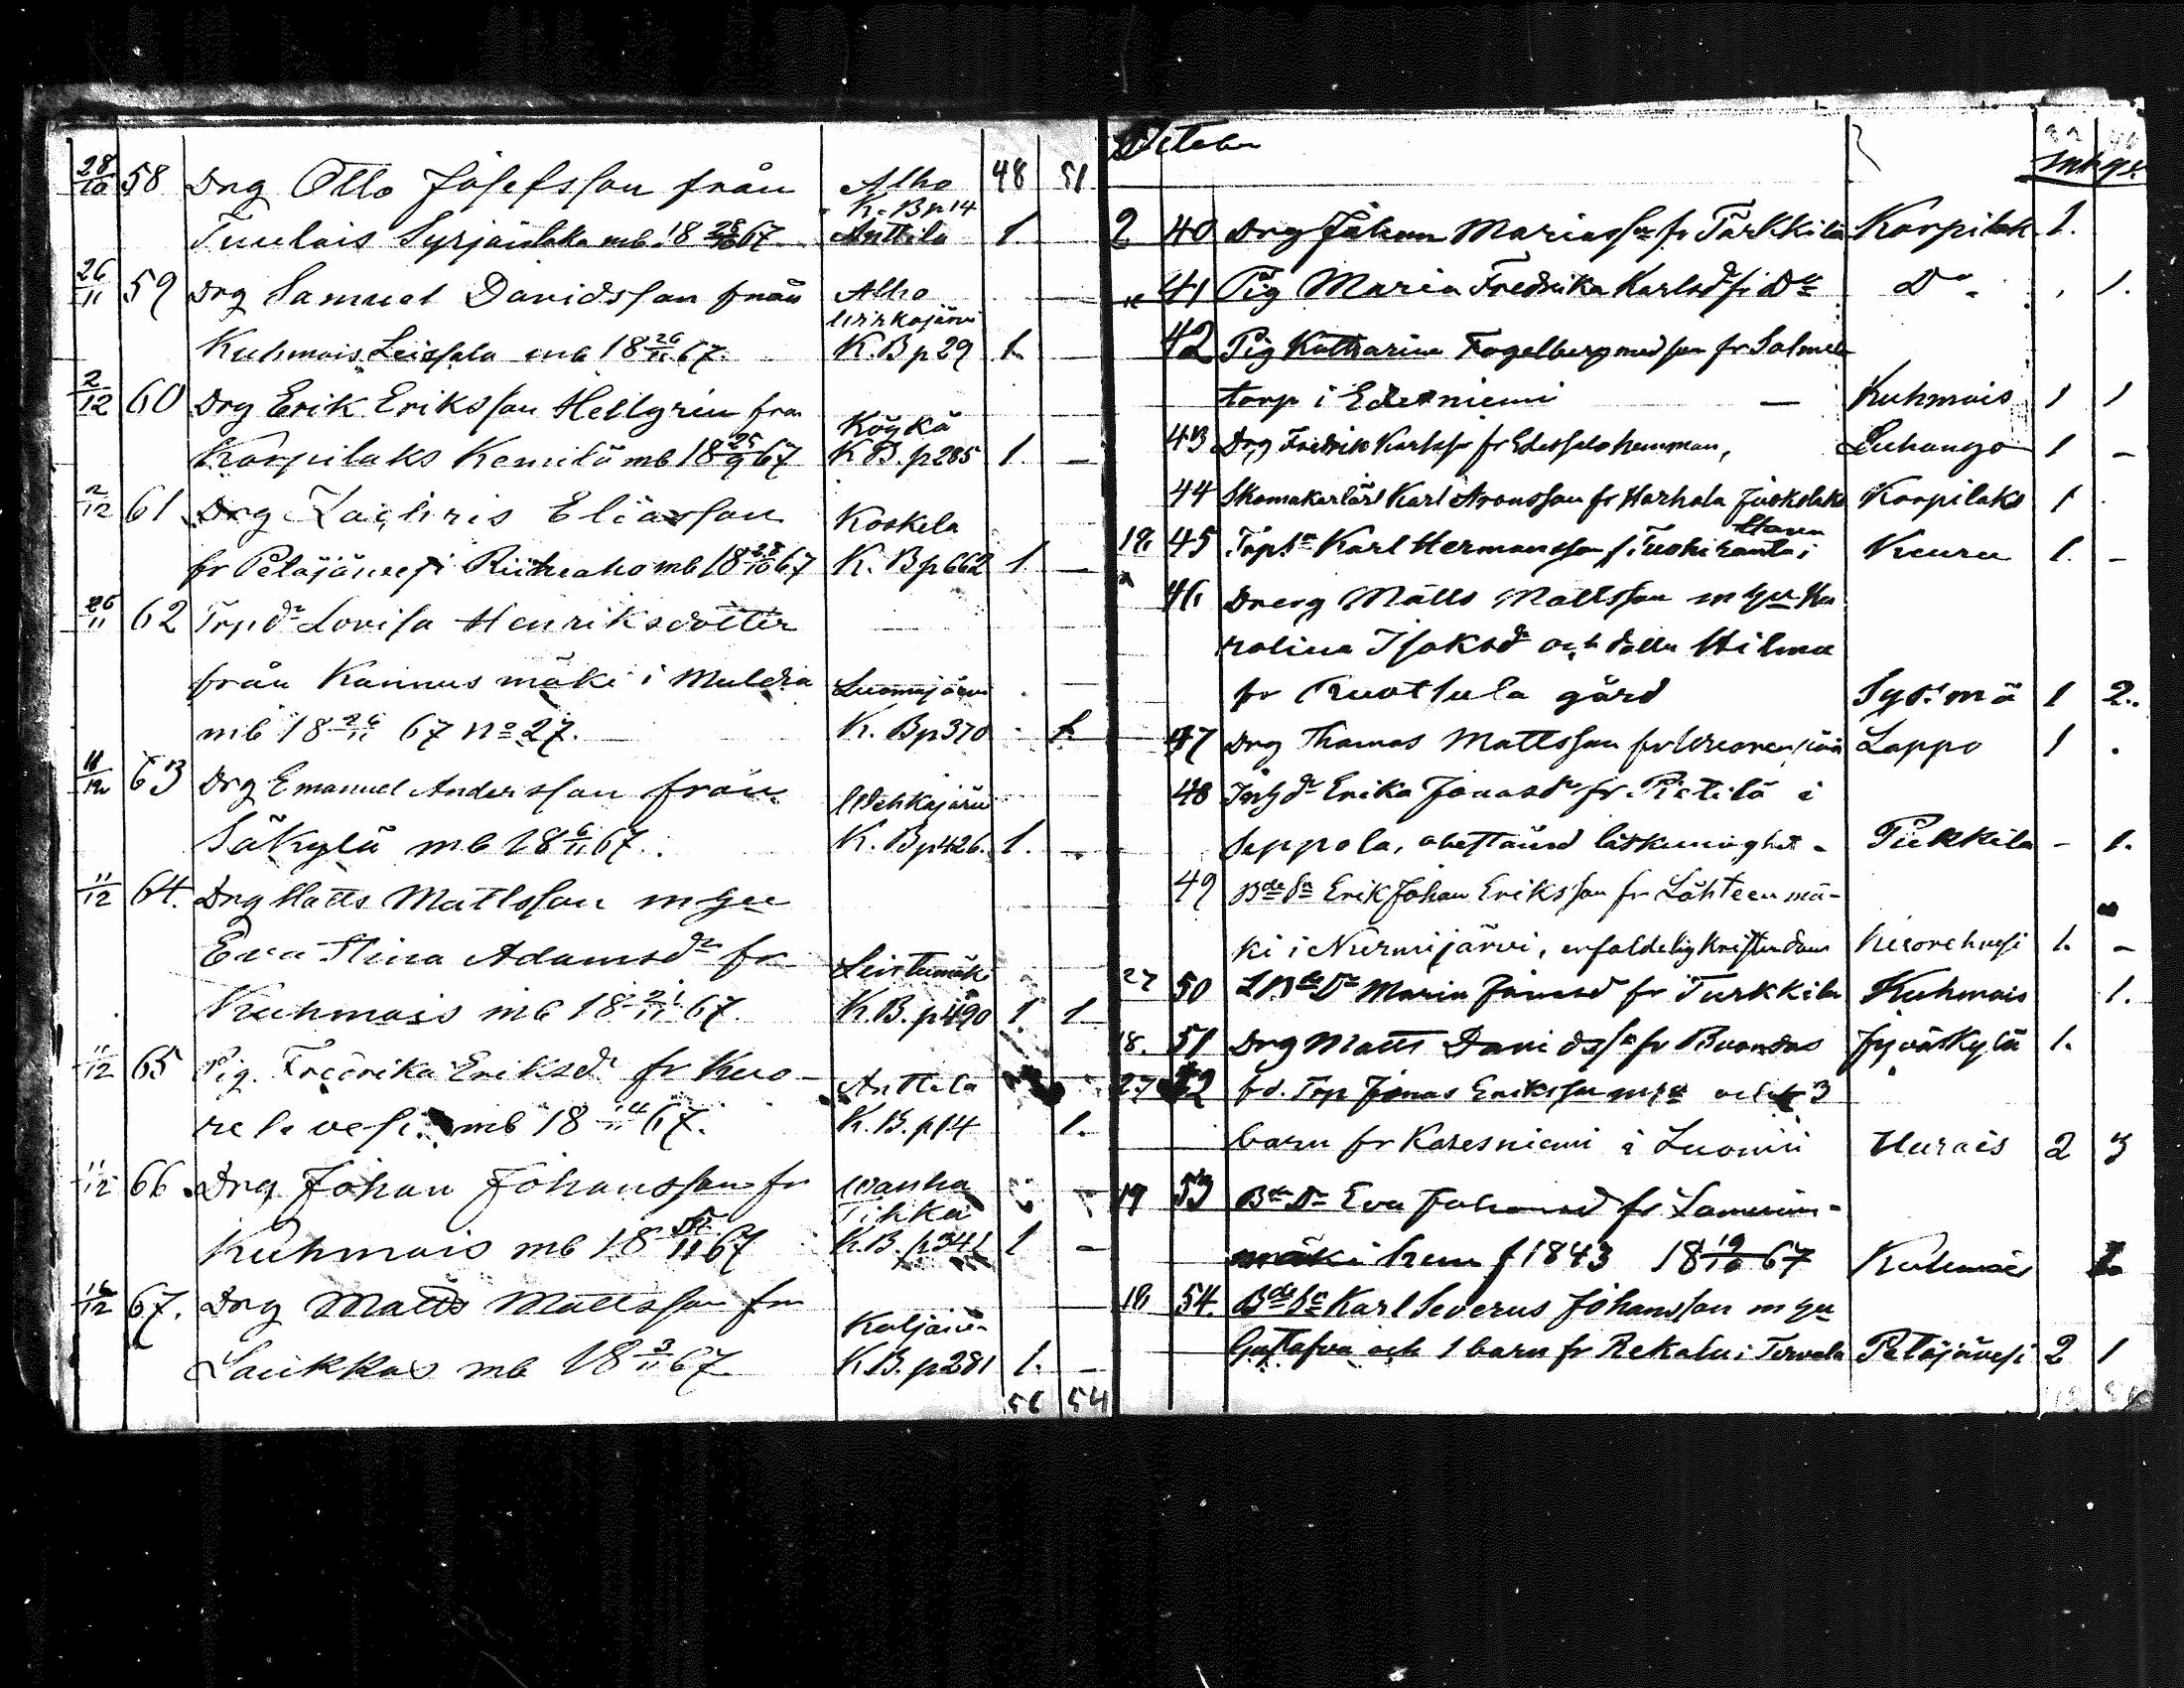 28/10 58 Drg Otto Josefsson från Alho 48 51
K.B p 14
Tuulais Syrjäntaka mb 18 28/10 67 Anttila 1.
26/11 59 Drg Samuel Davidsson från Alho
Kuhmois Leissala mb 18 26/11 67. K.B p 29 1.
2/12 60 Drg Erik Eriksson Hellgrén från Köykä
Korpilaks Kemilä mb 18 25/9 67 K.B. p 285 1. –
2/12 61 Drg Zachris Eliasson Koskela
fr Petäjävesi Riiheaho mb 18 28/10 67 K. B p 662 1 –
26/11 62 Trpdr Lovisa Henriksdotter
från Kannus mäki i Muldia Luomajärvi
mb 18 26/11 67 No 27. K. B p 370 1.
11/12 63 Drg Emanuel Andersson från Wehkajärvi
Säkylä mb 18 6/11 67. K. B p 426. 1. –
11/12 64. Drg Matts Mattsson m hu
Eva Stina Adamsdr fr
Kuhmois mb 18 21/11 67. K.B. p 490 1 1
11/12 65 Pig. Fredrika Eriksdr fr Kuo- Anttila
revesi mb 18 14/11 67. K.B. p 14 1.
11/12 66. Drg Johan Johansson fr Wanha
Tihka
Kuhmois mb 18 /11 67 K.B. p 341 1 –
12 67. Drg Matts Mattsson fr
Laukkas mb 18 3/11 67 K.B. p 281 1. –
56 54
October
mk qv.
2 40 Drg Johan Mariasson fr Turkkila Korpilak 1.
" 41 Pig Maria Fredrika Karlsdr fr Do Do 1.
42 Pig Katharina Fagelberg med son fr Salmela
torp i Edesniemi — Kuhmois 1 1
43 Drg Fredrik Karlsson fr Edessalo hemman, Luhango 1 –
44 Skomakarlärl Karl Aronsson fr Harhala Juokslaks Korpilaks 1
18 45 Karl Hermansson fr Tuohiranta i Keuru 1. –
46 Dreng Matts Mattsson m hu Ka
rolina Isaksdr och dottr Hilma
fr Ruotsula gård Sysmä 1 2.
47 Drg Thomas Mattsson fr Lappo 1 .
48 Inhdr Erika Jonasdr fr Pietilä i
Seppola, obestånd läskunnighet – Pukkila – 1.
49 Bde Sn Erik Johan Eriksson fr Lähteenmä-
ki i Nurmijärvi, enfaldelig kristendom Kuorehvesi 1. –
27 50 Maria Jonasd fr Turkkila Kuhmois 1.
18. 51 Drg Matts Davidsson fr Jyväskylä 1.
27 52 fd. Trp Jonas Eriksson m hu och 3
barn fr Karesniemi i Luomi Uurais 2 3
19 53 Bde Dr Eva Johansd fr
mäki hem f 1843 18 19/10 67 Kuhmois 1.
18 54. Bde Sn Karl Severus Johansson m hu
Gustafva och 1 barn fr Rekola i Tervala Petäjävesi 2 1